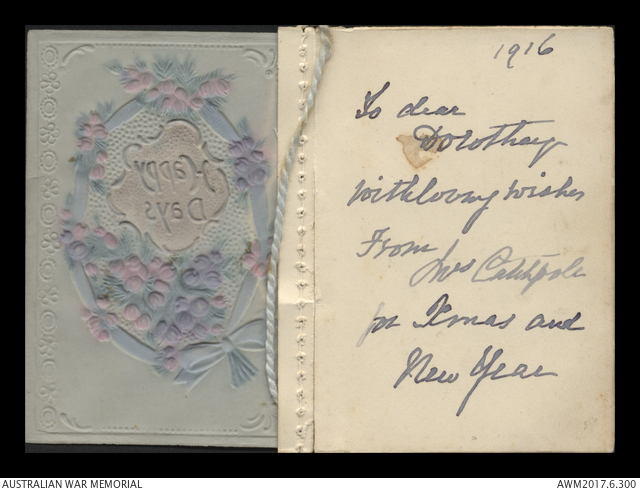 Happy
Days
1916
To dear
Dorothay
with loving wishes
From
Mrs Catchpole
for Xmas and
New Year
AUSTRALIAN WAR MEMORIAL
AWM2017.6.300